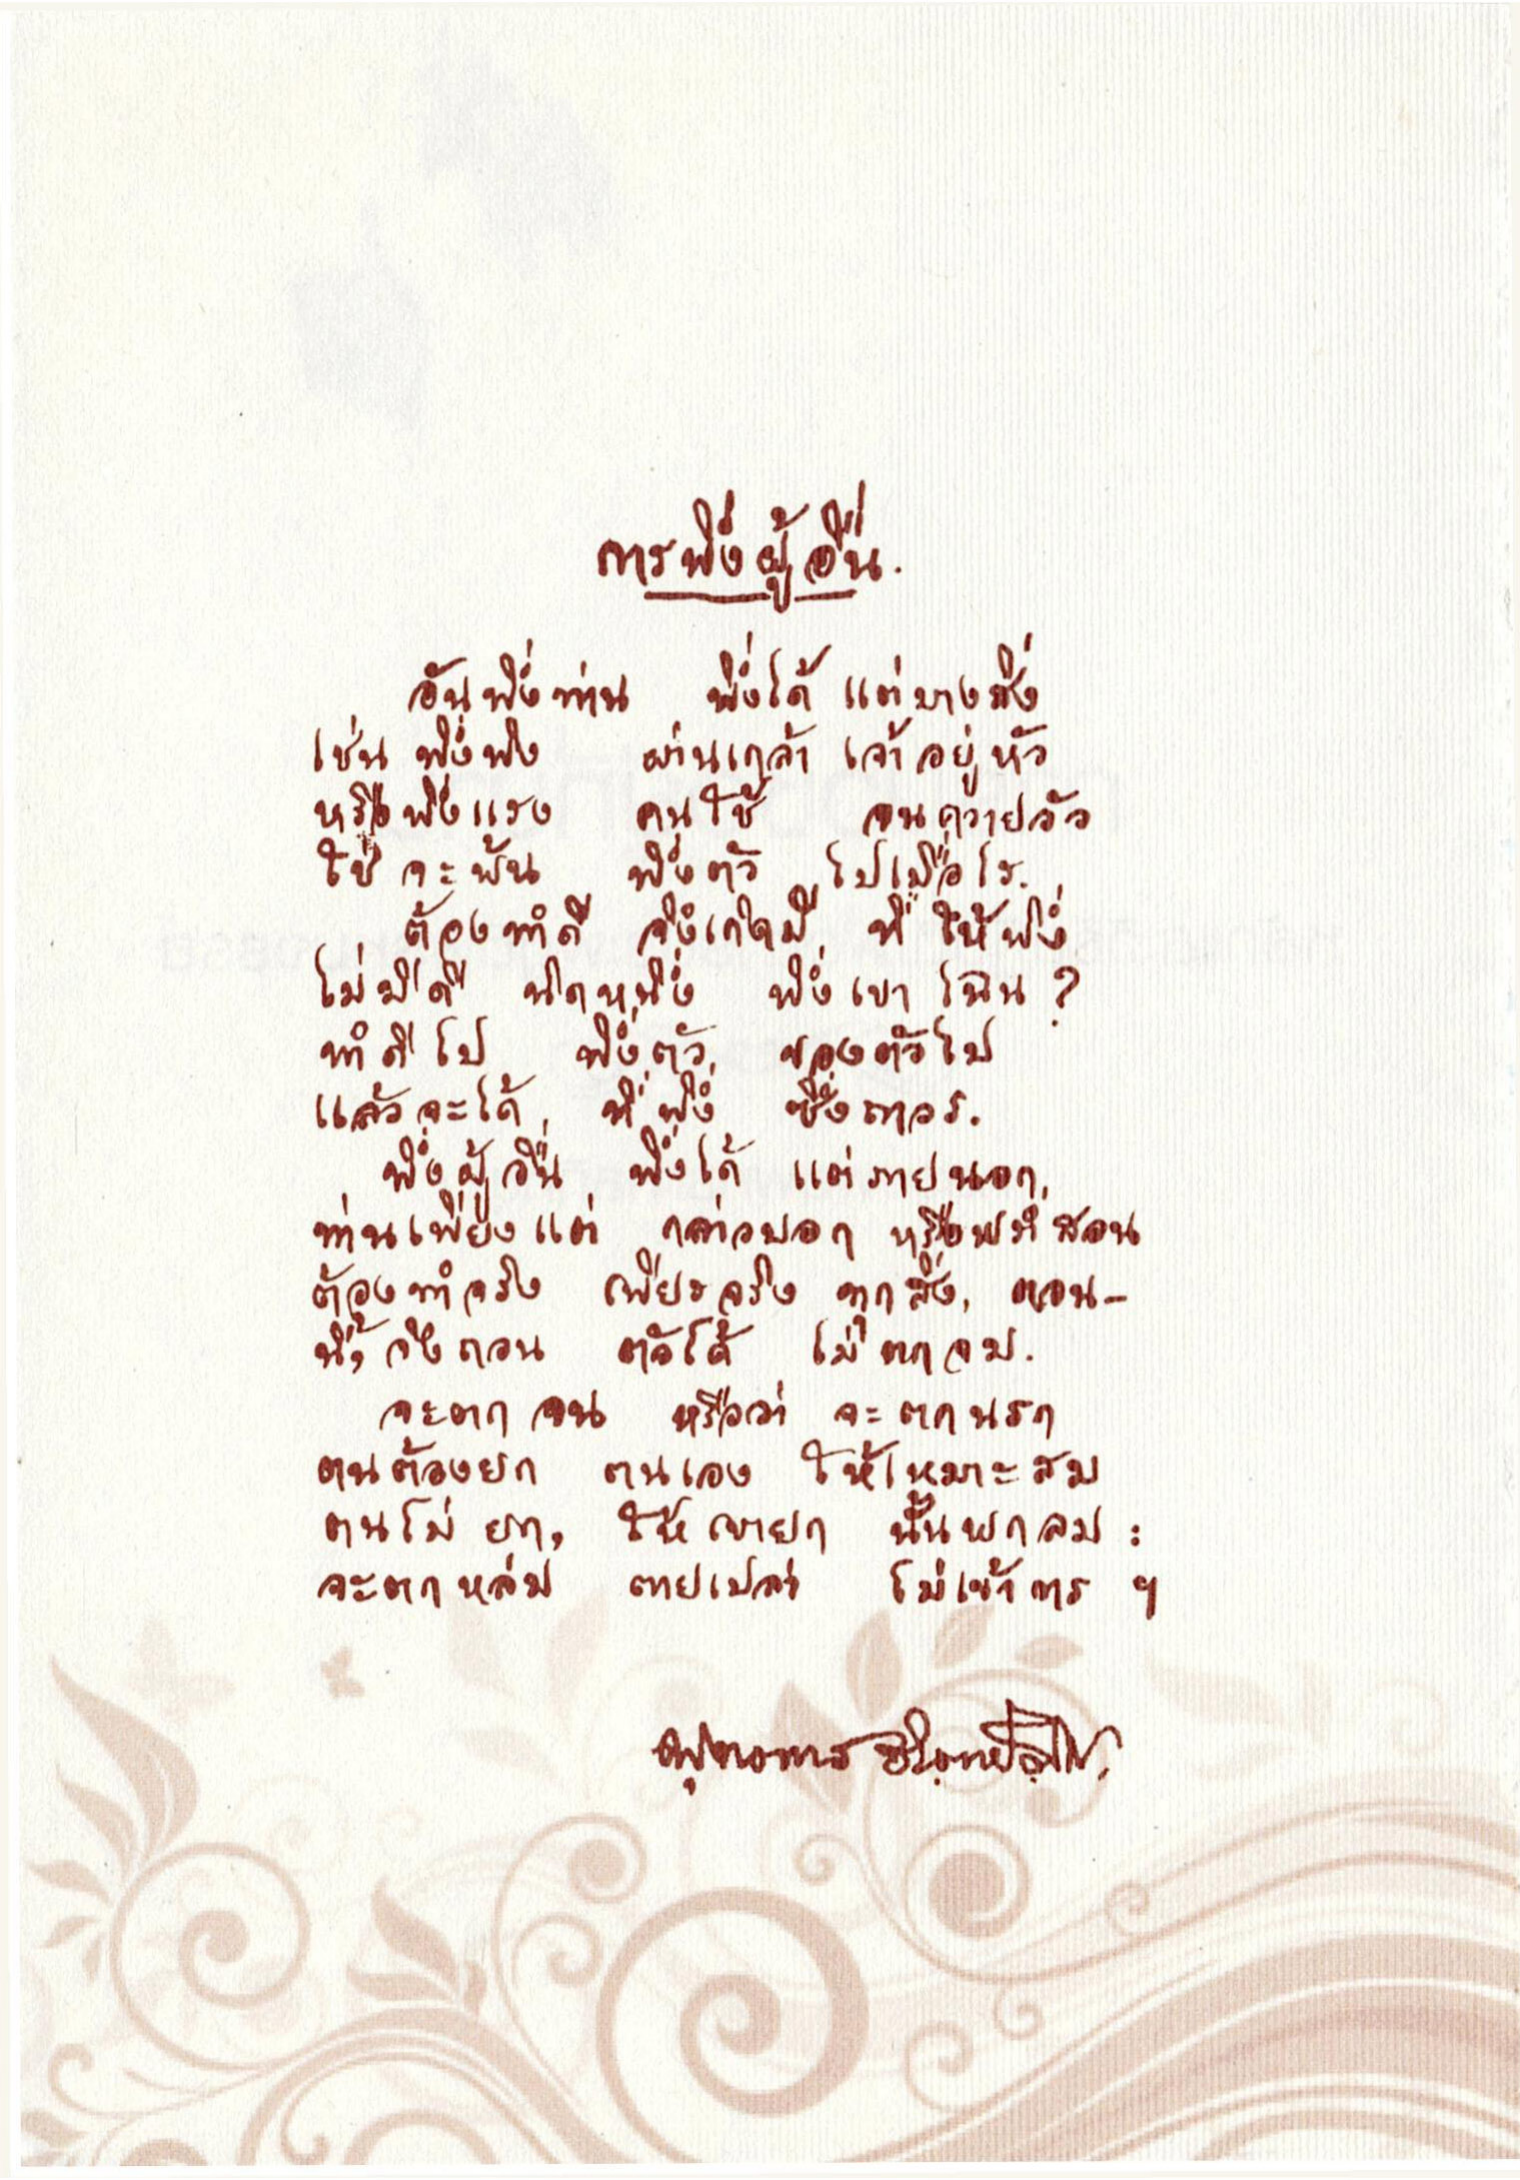 การพึ่งผู้อื่น.
อันพึ่งท่าน พึ่งได้ แต่บางสิ่ง
เช่น พึ่งพิง ผ่านเกล้า เจ้าอยู่หัว
หรือพึ่งแรง คนใช้ จนควายวัว
ใช่จะพ้น พึ่งตัว ไปเมื่อไร.
ต้องทำดี จึงเกิดมี ที่ให้พึ่ง
ไม่มีดี นิดหนึ่ง พึ่งเขาไฉน?
ทำดีไป พึ่งตัว ของตัวไป
แล้วจะได้ ที่พึ่ง ซึ่งถาวร.
พึ่งผู้อื่น พึ่งได้ แต่ภายนอก,
ท่านเพียงแต่ กล่าวบอก หรือพร่ำสอน
ต้องทำจริง เพียรจริง ทุกสิ่ง, ตอน-
นี้, จึงถอน ตัวได้ ไม่ตกจม.
จะตกจน หรือว่า จะตกนรก
ตนต้องยก ตนเอง ให้เหมาะสม
ตนไม่ยก, ให้เขายก นั้นพกลม :
จะตกหล่ม ตายเปล่า ไม่เข้าการ ฯ
พุทธทาส อินฺทปญฺโญ.